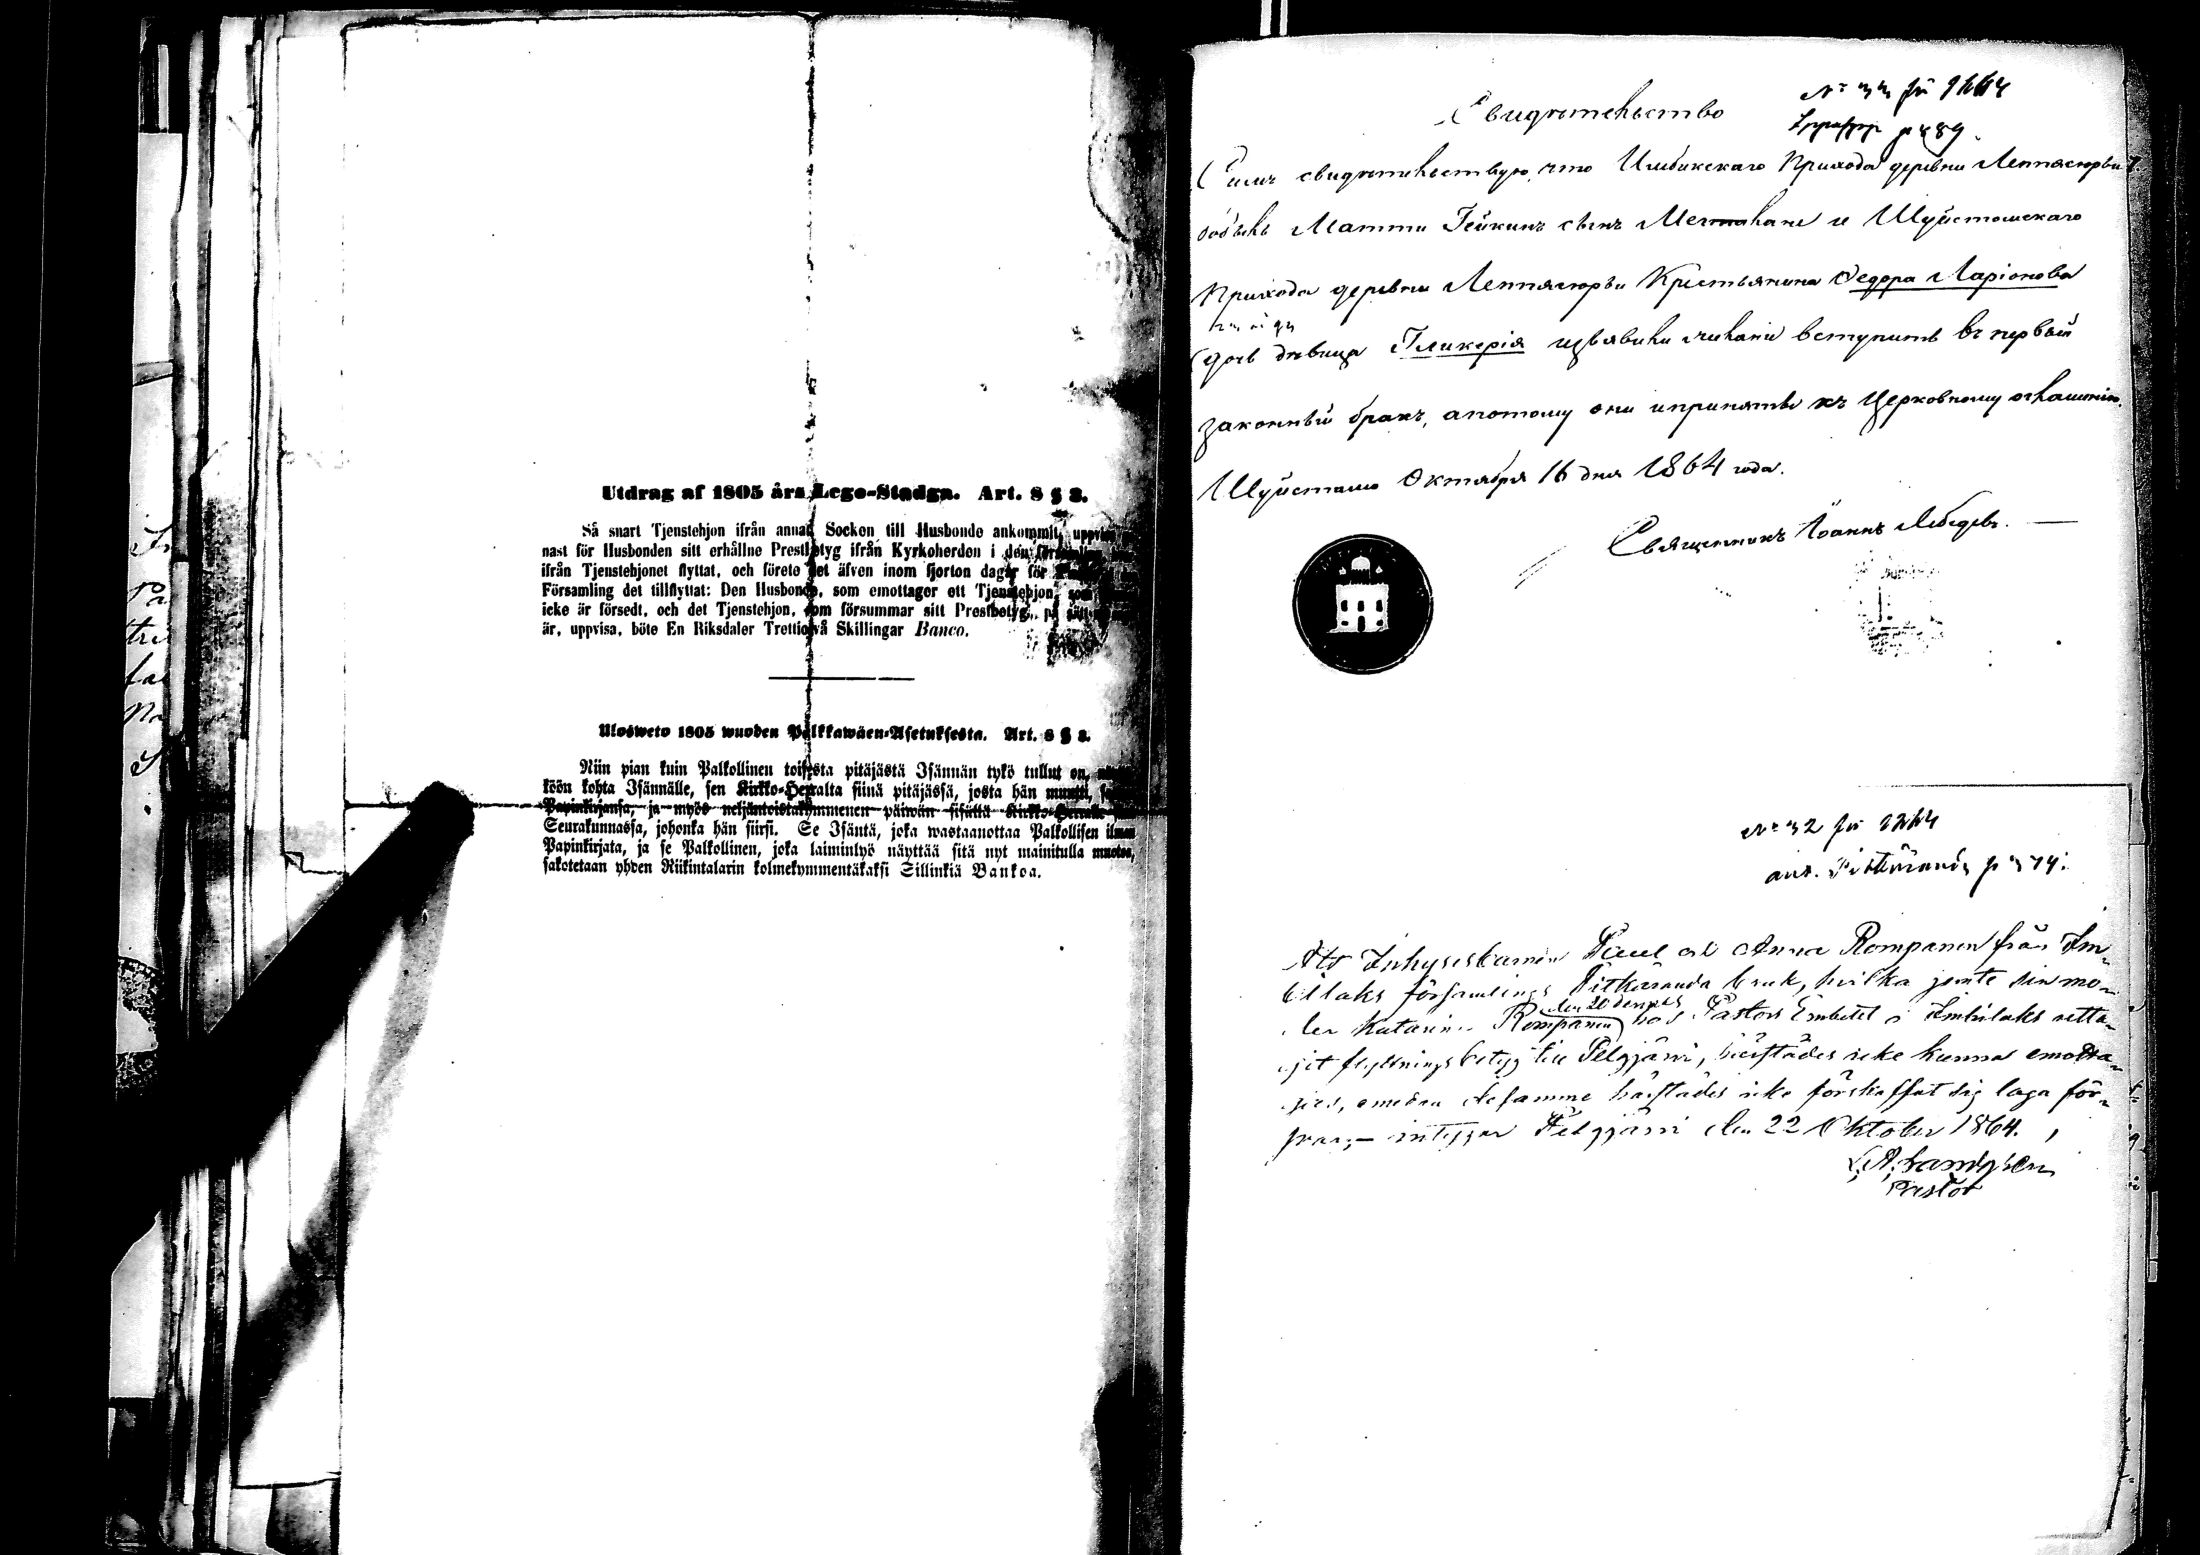 Utdrag af 1805 års Lego-Stadga. Art. 8 § 3.
Så snart Tjenstehjon ifrån annan Socken till Husbonde ankommit,
nast för Husbonden sitt erhållne Prestbetyg ifrån Kyrkoherden i den
ifrån Tjenstehjonet flyttat, och förete det äfven inom fjorton dagar för
Församling det tillflyttat: Den Husbonde, som emottager ett Tjenstehjon, som
icke är försedt, och det Tjenstehjon, som försummar sitt Prestbetyg, på sätt
är, uppvisa, böte En Riksdaler Trettiotvå Skillingar Banco.
Ulosweto 1805 wuoden Palkkawäen-Asetuksesta. Art. 8 § 3.
Niin pian kuin Palkollinen toisesta pitäjästä Isännän tykö tullut on,
köön kohta Isännälle, sen Kirkko-Herralta siinä pitäjässä, josta hän muutti,
Papinkirjansa, ja myös neljäntoistakymmenen päiwän sisällä Kirkko-Herralle
Seurakunnassa, johonka hän siirsi. Se Isäntä, joka wastaanottaa Palkollisen ilman
Papinkirjata, ja se Palkollinen, joka laiminlyö näyttää sitä nyt mainitulla muotoa,
sakotetaan yhden Riikintalarin kolmekymmentäkaksi Sillinkiä Bankoa.
Свидѣтельство
Симъ свидѣтельствую, что Имбикскаго Прихода деревни Леппясюрьи
бобыль Матти Гейкинъ сынъ и Шуйстомскаго
Прихода деревни Леппясюрьи Крестьянина Федора Ларіонова
дочь дѣвица Гликерія изъявили желаніе вступить въ первый
законный бракъ, а потому они и приняты къ Церковному оглашенію.
Шуйстамо Октября 16 дня 1864 года.
Священникъ Іоаннъ Лебедевъ.
Nº 32 för 1864
ant. Pitkäranda p
Att Inhyseskarnen Paul och Anna Rompanen från Im-
billaks församlings Pitkäranda bruk, hvilka jemte sin mo-
den 20 dennes
der Katarina Rompanen hos Pastors Embetet i Imbilaks utta-
git flyttningsbetyg till Pelgjärvi, härstädes icke kunna emotta-
gas, emedan desamme härstädes icke förskaffat sig laga för-
svar, intygar Pelgjärvi den 22 Oktober 1864.
Pastor